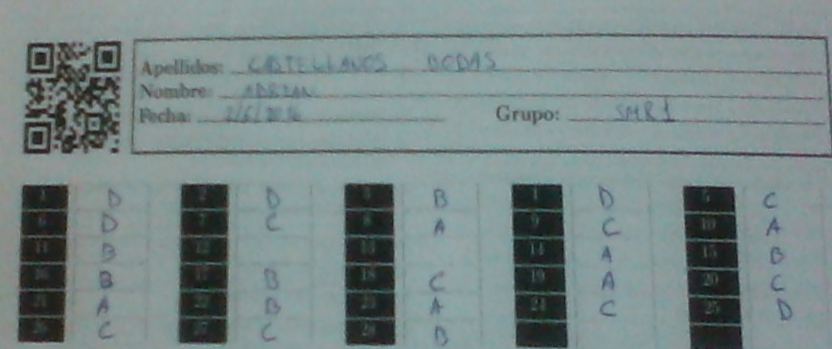 Apellidos: CASTELLANOS BODAS
Nombre: ADRIAN
Fecha: 2/6/2016 Grupo: SMR1
1 D 2 D 3 B 4 D 5 C
6 D 7 C 8 A 9 C 10 A
11 B 12 13 14 A 15 B
16 B 17 B 18 C 19 A 20 C
21 A 22 B 23 A 24 C 25 D
26 C 27 C 28 B